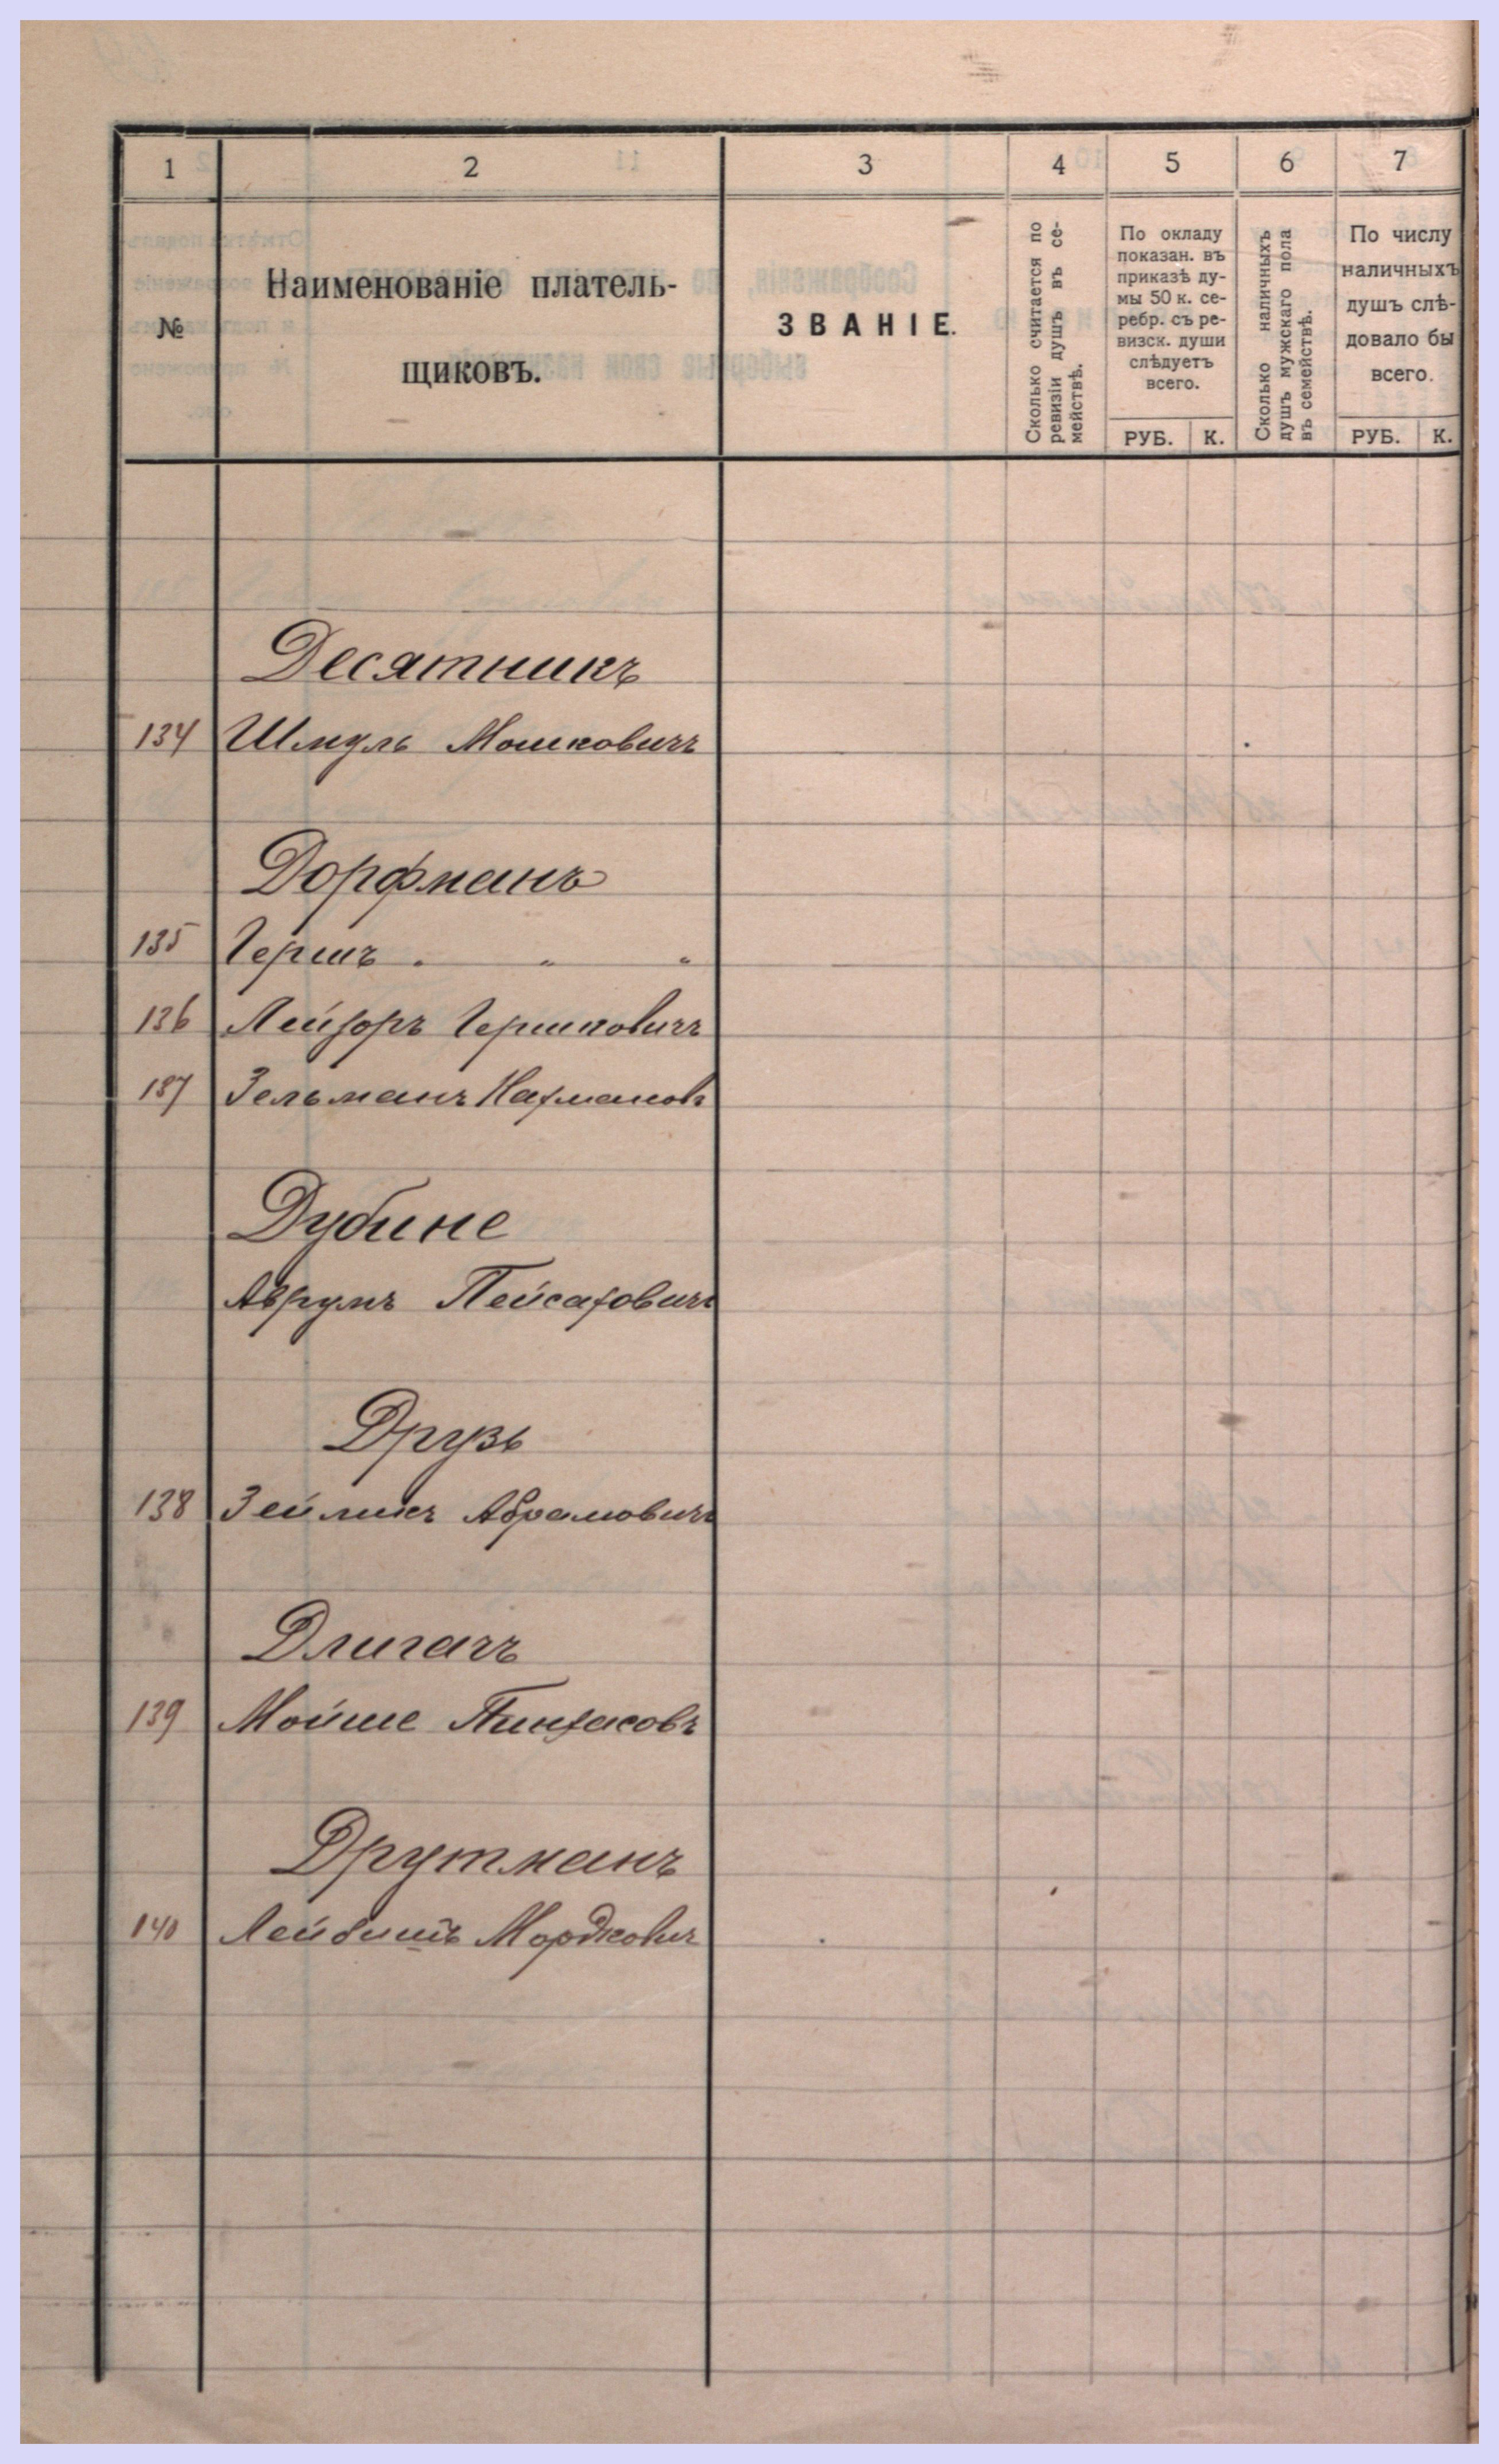 1 2 3 4 5 6 7
№
Наименованіе платель-
щиковъ.
ЗВАНІЕ.
Сколько считается по
ревизіи душъ въ се-
мействѣ.
По окладу
показан. въ
приказѣ ду-
мы 50 к. се-
ребр. съ ре-
визск. души
слѣдуетъ
всего.
РУБ. К.
Сколько наличныхъ
душъ мужскаго пола
въ семействѣ.
По числу
наличныхъ
душъ слѣ-
довало бы
всего.
РУБ. К.
Десятникъ
134 Шмуль Мошковичъ
Дорфманъ
135 Гершъ . „ „
136 Лейзоръ Гершковичъ
137 Зельманъ Нахмановъ
Дубине
Аврумъ Пейсаховичъ
Друзь
138 Зейликъ Абрамовичъ
Длигачъ
139 Мойше Пинхасовъ
Друтманъ
140 Лейбишъ Мордковичъ